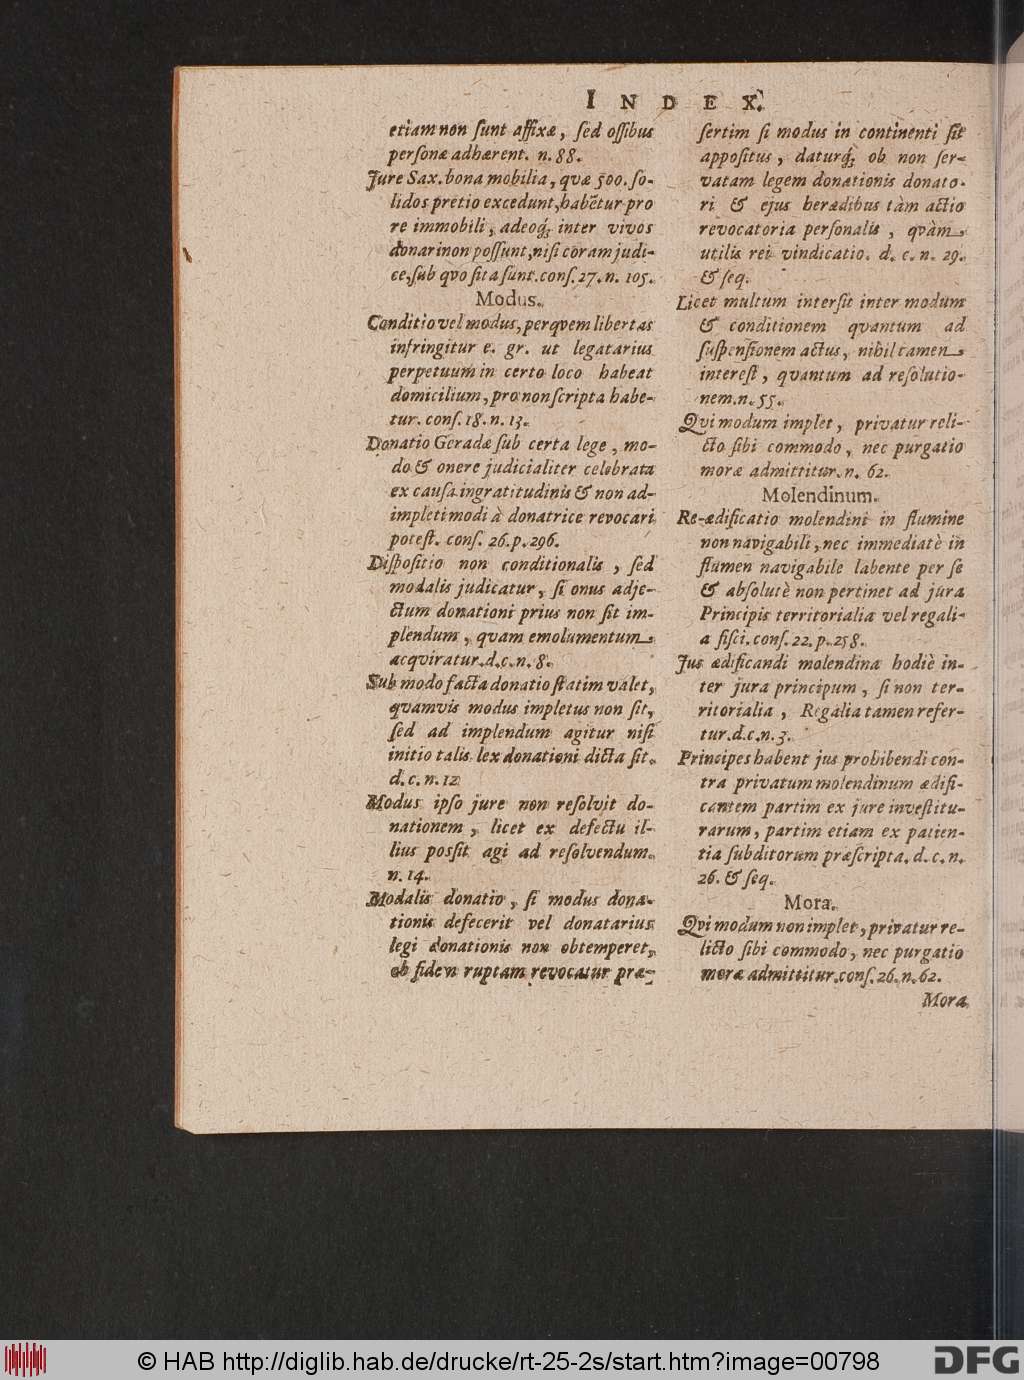 INDEX.
etiam non ſunt affixæ, ſed oſſibus
perſonæ adhærent. n. 88.
Jure Sax. bona mobilia, qvæ 500. ſo-
lidos pretio excedunt, habẽtur pro
re immobili, adeoq́; inter vivos
donari non poſſunt, niſi coram judi-
ce, ſub qvo ſita ſunt. conſ. 27. n. 105.
Modus.
Conditio vel modus, per qvem libertas
infringitur e. gr. ut legatarius
perpetuum in certo loco habeat
domicilium, pro non ſcripta habe-
tur. conſ. 18. n. 13.
Donatio Geradæ ſub certa lege, mo-
do & onere judicialiter celebrata
ex cauſa ingratitudinis & non ad-
impleti modi à donatrice revocari
poteſt. conſ. 26. p. 296.
Diſpoſitio non conditionalis, ſed
modalis judicatur, ſi onus adje-
ctum donationi prius non ſit im-
plendum, qvam emolumentum
acqviratur. d. c. n. 8.
Sub modo facta donatio ſtatim valet,
qvamvis modus impletus non ſit,
ſed ad implendum agitur niſi
initio talis lex donationi dicta ſit.
d. c. n. 12
Modus ipſo jure non reſolvit do-
nationem, licet ex defectu il-
lius poſſit agi ad reſolvendum.
n. 14.
Modalis donatio, ſi modus dona-
tionis defecerit vel donatarius
legi donationis non obtemperet,
ob fidem ruptam revocatur præ-
ſertim ſi modus in continenti ſit
appoſitus, daturq́; ob non ſer-
vatam legem donationis donato-
ri & ejus heræedibus tàm actio
revocatoria perſonalis, qvàm
utilis rei vindicatio. d. c. n. 29.
& ſeq.
Licet multum interſit inter modum
& conditionem qvantum ad
ſuſpenſionem actus, nihil tamen
intereſt, qvantum ad reſolutio-
nem. n. 55.
Qvi modum implet, privatur reli-
cto ſibi commodo, nec purgatio
moræ admittitur. n. 62.
Molendinum.
Re-ædificatio molendini in flumine
non navigabili, nec immediatè in
flumen navigabile labente per ſe
& abſolutè non pertinet ad jura
Principis territorialia vel regali-
a fiſci. conſ. 22. p. 258.
Jus ædificandi molendina hodiè in-
ter jura principum, ſi non ter-
ritorialia, Regalia tamen refer-
tur. d. c. n. 3.
Principes habent jus prohibendi con-
tra privatum molendinum ædifi-
cantem partim ex jure inveſtitu-
rarum, partim etiam ex patien-
tia ſubditorum præſcripta. d. c. n.
26. & ſeq.
Mora.
Qvi modum non implet, privatur re-
licto ſibi commodo, nec purgatio
moræ admittitur. conſ. 26. n. 62.
Mora
© HAB http://diglib.hab.de/drucke/rt-25-2s/start.htm?image=00798
DFG